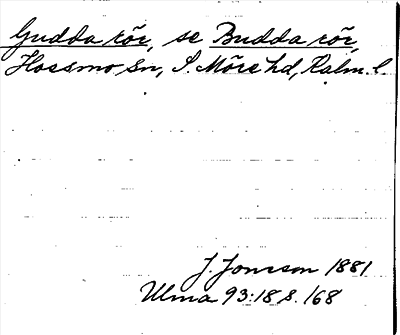 Gudda rör, se Budda rör,
Hossmo sn, S. Möre hd, Kalm. l.
J. Jonsson 1881
Ulma 93:18 s. 168